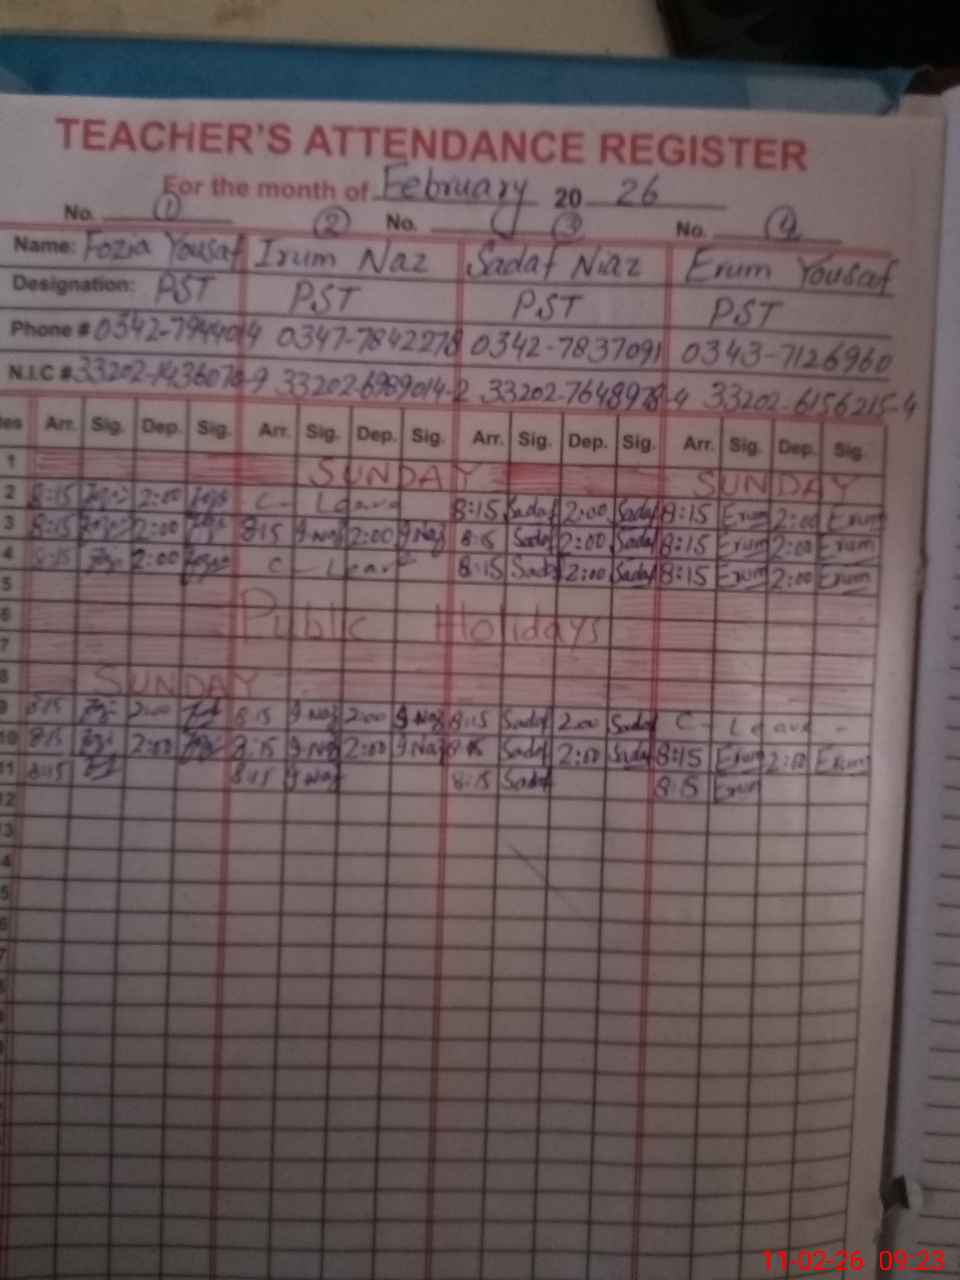 TEACHER'S ATTENDANCE REGISTER
For the month of February 20 26
No. 1 2 No. 3 No. 4
Name: Fozia Yousaf Irum Naz Sadaf Niaz Erum Yousaf
Designation: PST PST PST PST
Phone # 0342-7944014 0347-7842278 0342-7837091 0343-7126960
N.I.C # 33202-6989014-2 33202-6156215-4
Arr. Sig. Dep. Sig. Arr. Sig. Dep. Sig. Arr. Sig. Dep. Sig. Arr. Sig. Dep. Sig.
1 SUNDAY SUNDAY
2 8:15 2:00 C- Leave 8:15 Sadaf 2:00 Sadaf 8:15 Erum 2:00 Erum
3 8:15 2:00 8:15 I.Naz 2:00 I.Naz 8:15 Sadaf 2:00 Sadaf 8:15 Erum 2:00 Erum
4 8:15 2:00 C- Leave 8:15 Sadaf 2:00 Sadaf 8:15 Erum 2:00 Erum
5
6 Public Holidays
7
8 SUNDAY
9 8:15 2:00 8:15 I.Naz 2:00 I.Naz 8:15 Sadaf 2:00 Sadaf C- Leave -
10 8:15 2:00 8:15 I.Naz 2:00 I.Naz 8:15 Sadaf 2:00 Sadaf 8:15 Erum 2:00 Erum
11 8:15 8:15 I.Naz 8:15 Sadaf 8:15 Erum
12
11-02-26 09:23